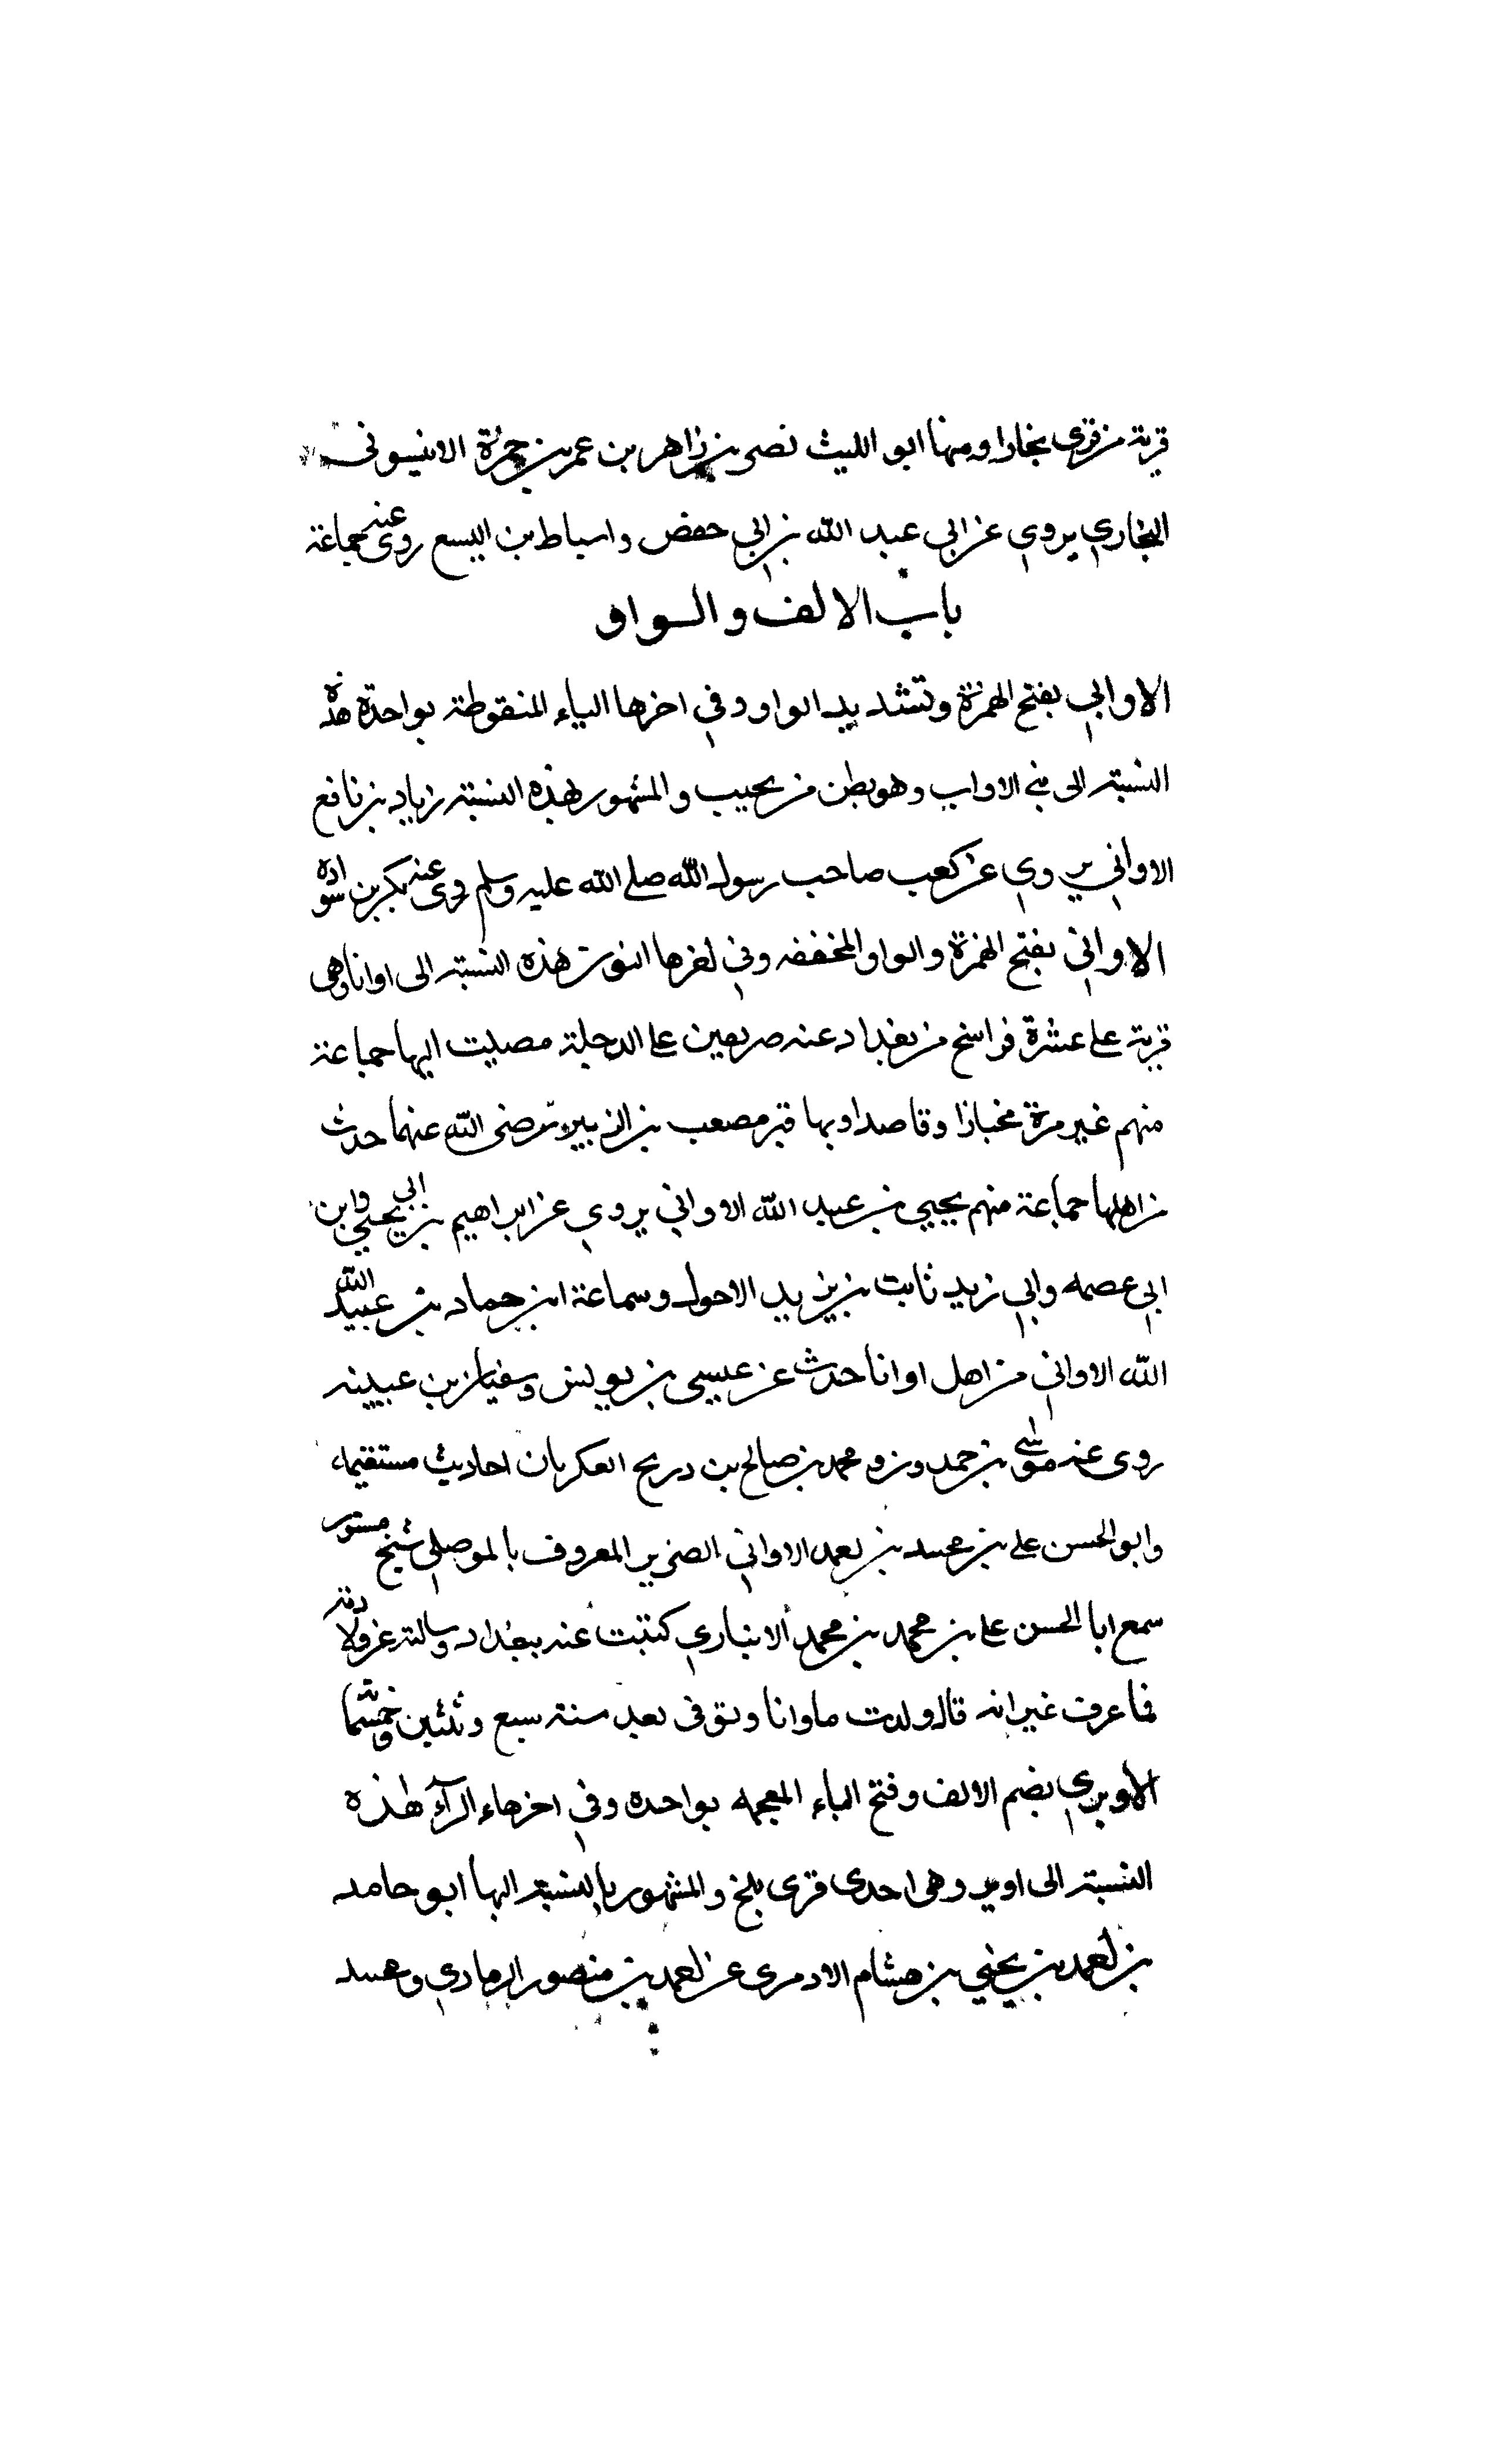 قرية من قرى بخارا ومنها ابو الليث نصر بن زاهر بن عمر بن حمزة الانيسوني
البخاري يروي عن ابي عبد الله بن ابي حفض واسباط بن اليسع روى عنه جماعة
باب الالف والواو
الاوابي بفتح الهمزة وتشديد الواو وفي اخرها الباء المنقوطة بواحدة هذه
النسبة الى بني الاواب وهو بطن من تجيب والمشهور بهذه النسبة زياد بن نافع
الاوابي يروي عن كعب صاحب رسول الله صلى الله عليه وسلم روى عنه بكر بن سوادة
الاواني بفتح الهمزة والواو المخففه وفي اخرها النون هذه النسبة الى اوانا وهى
قرية على عشرة فراسخ من بغداد عند صريفين على الدجلة مصليت اليها جماعة
منهم غير مرة مجتازا وقاصدا وبها قبر مصعب بن الزبير رضى الله عنهما حدث
من اهلها جماعة منهم يحيي بن عبد الله الاواني يروي عن ابراهيم بن ابي يحيي وابن
ابي عصمه وابي زيد ثابت بن يزيد الاحول وسماعة ابن حماد بن عبيد الله
الله الاواني من اهل اوانا حدث عن عيسى بن يونس وسفيان بن عيينه
روى عنه موسى بن حمدون ومحمد بن صالح بن ذريح العكريان احاديث مستقيما
وابو الحسن على بن محمد بن احمد الاواني الضرير المعروف بالموصلي شيخ مستور
سمع ابا الحسن على بن محمد بن محمد الانباري كتبت عنه ببغداد وسالته عن ولادته
فما عرف غير انه قال ولدت باوانا وتوفى بعد سنة سبع وثلثين وخمسمائة
الاوبري بضم الالف وفتح الباء المعجمه بواحده وفي اخرهاء الرآء هذه
النسبة الى اوبر وهى احدى قرى بلخ والمشهور بالنسبة اليها ابو حامد
بن احمد بن يحيي بن هشام الادمرى عن احمد بن منصور الرمادي ومحمد